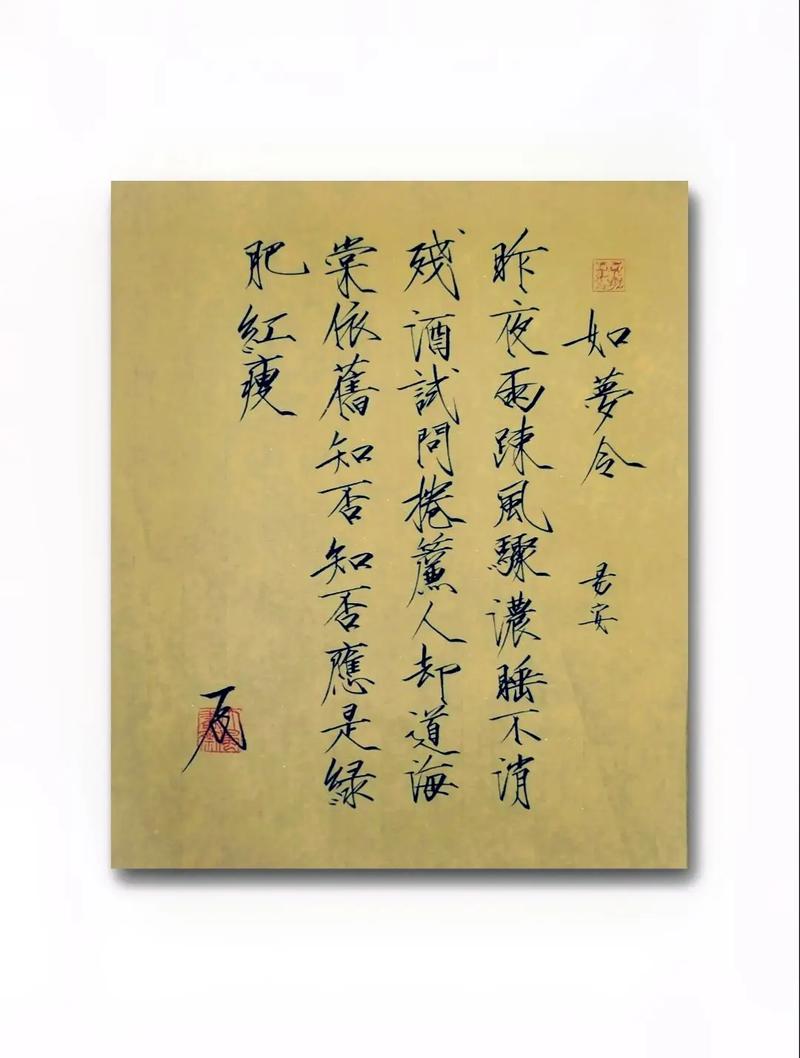 如夢令 易安
昨夜雨踈風驟濃睡不消
殘酒試問捲簾人却道海
棠依舊知否知否應是綠
肥紅瘦